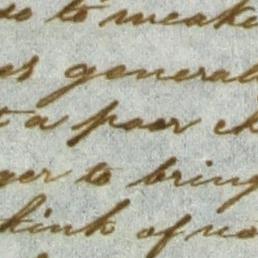 to weake
general
a poor ch
ger to bring
think of